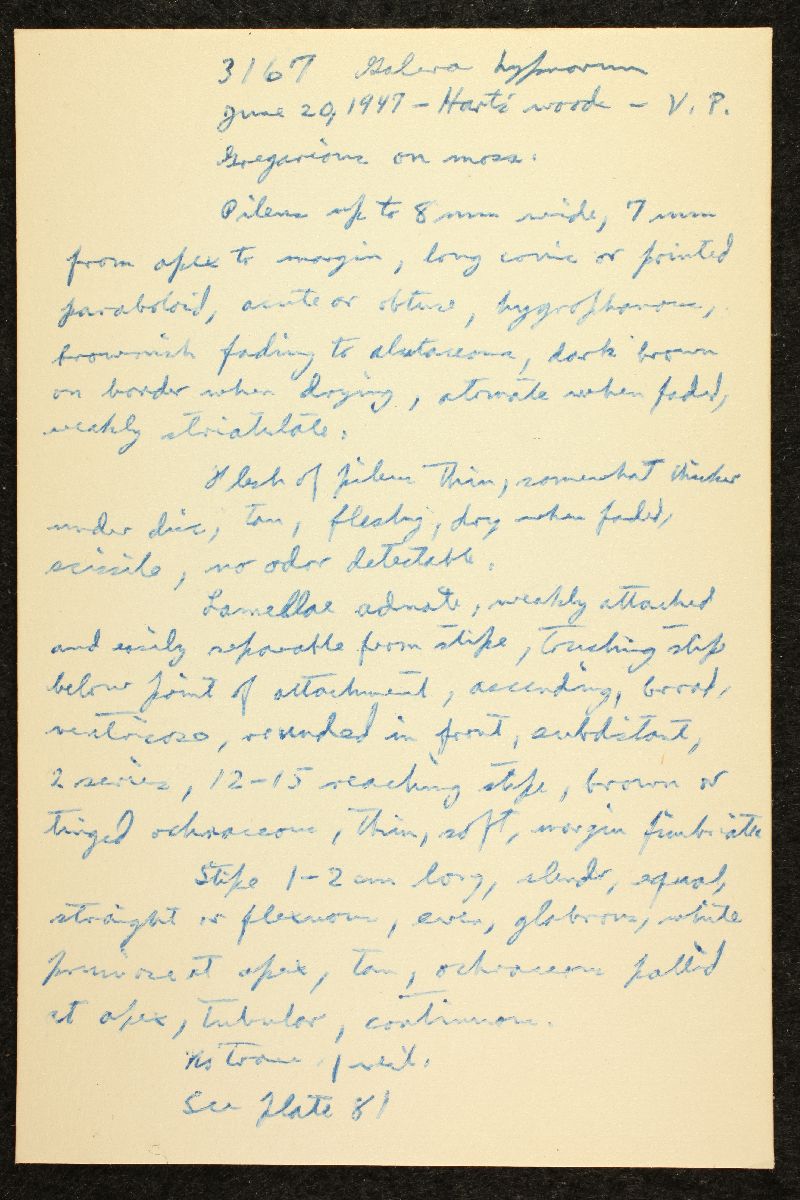 3167 Galera hypnorum
June 20, 1947 - Hart's woods - V. P.
Gregarious on moss.
Pileus up to 8 mm wide, 7 mm
from apex to margin, long conic or pointed
paraboloid, acute or obtuse, hygrophanous,
brownish fading to alutaceous, dark brown
on border when drying, atomate when faded,
weakly striatulate.
Flesh of pileus thin, somewhat thicker
under disc, tan, fleshy, dry when faded,
scissile, no odor detectable.
Lamellae adnate, weakly attached
and easily separable from stipe, touching stipe
below point of attachment, ascending, broad,
ventricose, rounded in front, subdistant,
2 series, 12-15 reaching stipe, brown or
tinged ochraceous, thin, soft, margin fimbriate
Stipe 1-2 cm long, slender, equal,
straight or flexuous, even, glabrous, white
pruinose at apex, tan, ochraceous pallid
at apex, tubular, continuous.
No trace of veil.
See plate 81